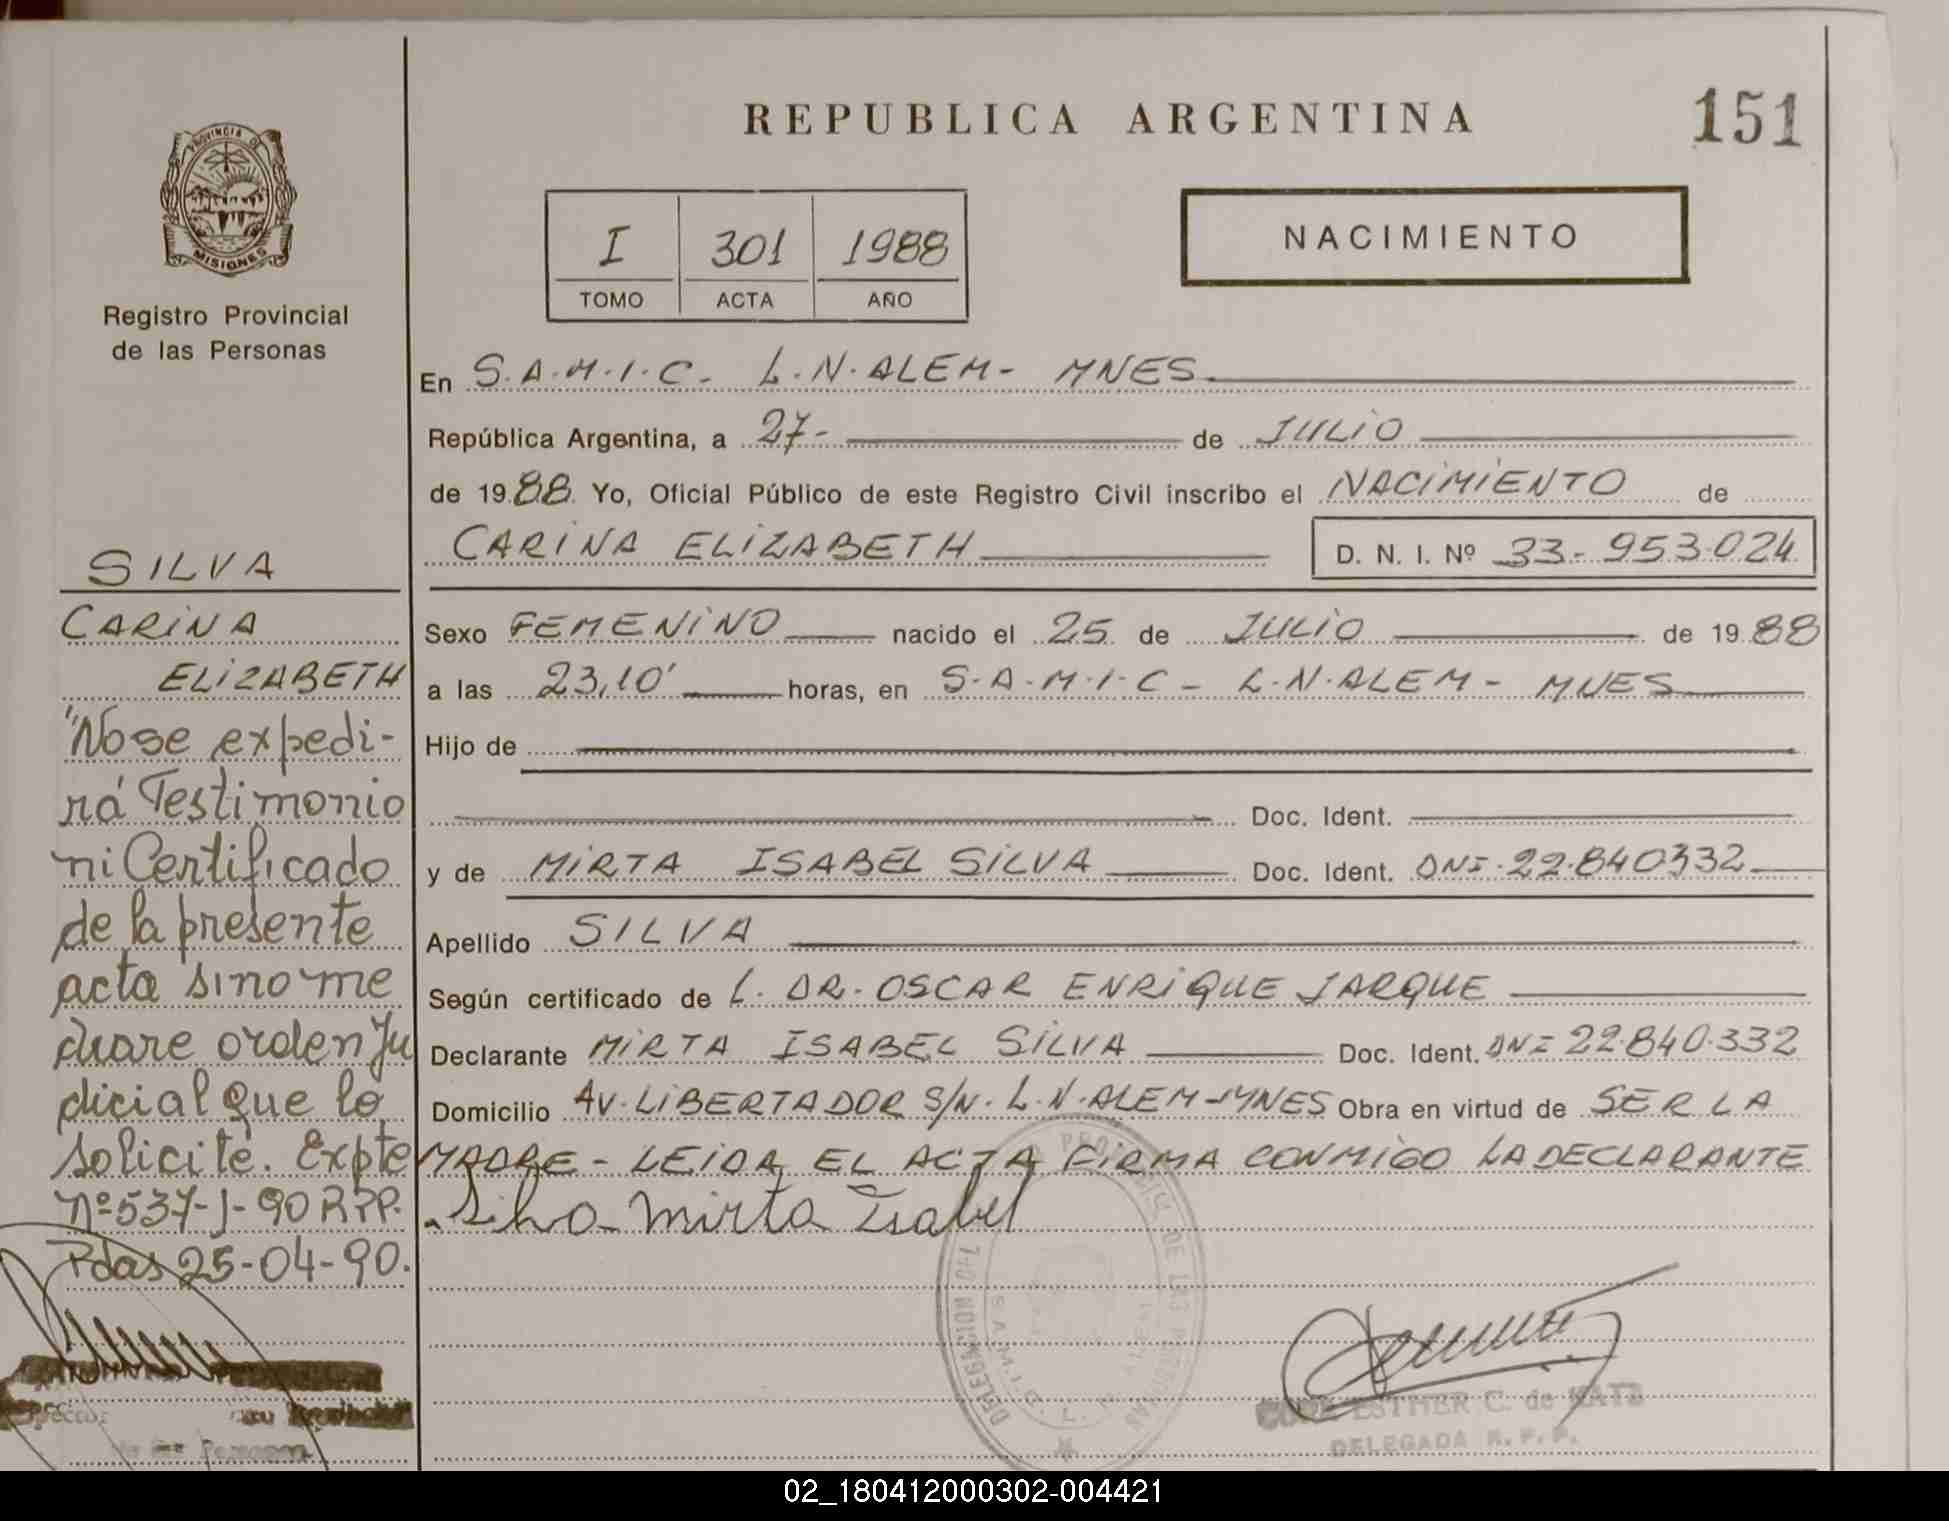 REPUBLICA ARGENTINA
151
PROVINCIA DE
MISIONES
Registro Provincial
de las Personas
I 301 1988
TOMO ACTA AÑO
NACIMIENTO
En S.A.M.I.C- L.N.ALEM- MNES
República Argentina, a 27- de JULIO
de 1988. Yo, Oficial Público de este Registro Civil inscribo el NACIMIENTO de
CARINA ELIZABETH D. N. I. Nº 33-953.024
Sexo FEMENINO nacido el 25 de JULIO de 1988
a las 23,10' horas, en S.A.M.I.C- L.N.ALEM- MNES
Hijo de
Doc. Ident.
y de MIRTA ISABEL SILVA Doc. Ident. DNI-22.840332
Apellido SILVA
Según certificado de L. DR. OSCAR ENRIQUE JARQUE
Declarante MIRTA ISABEL SILVA Doc. Ident. DNI 22.840.332
Domicilio AV. LIBERTADOR S/N. L.N.ALEM-MNES Obra en virtud de SER LA
MADRE- LEIDA EL ACTA FIRMA CONMIGO LA DECLARANTE
Silva Mirta Isabel
SILVA
CARINA
ELIZABETH
"No se expedi-
rá Testimonio
ni Certificado
de la presente
acta sino me
diare orden Ju
dicial que lo
solicite. Expte
Nº 537-J-90 RPP.
Pdas 25-04-90.
de las Personas
ESTHER C. de KATZ
DELEGADA R. P. P.
02_180412000302-004421